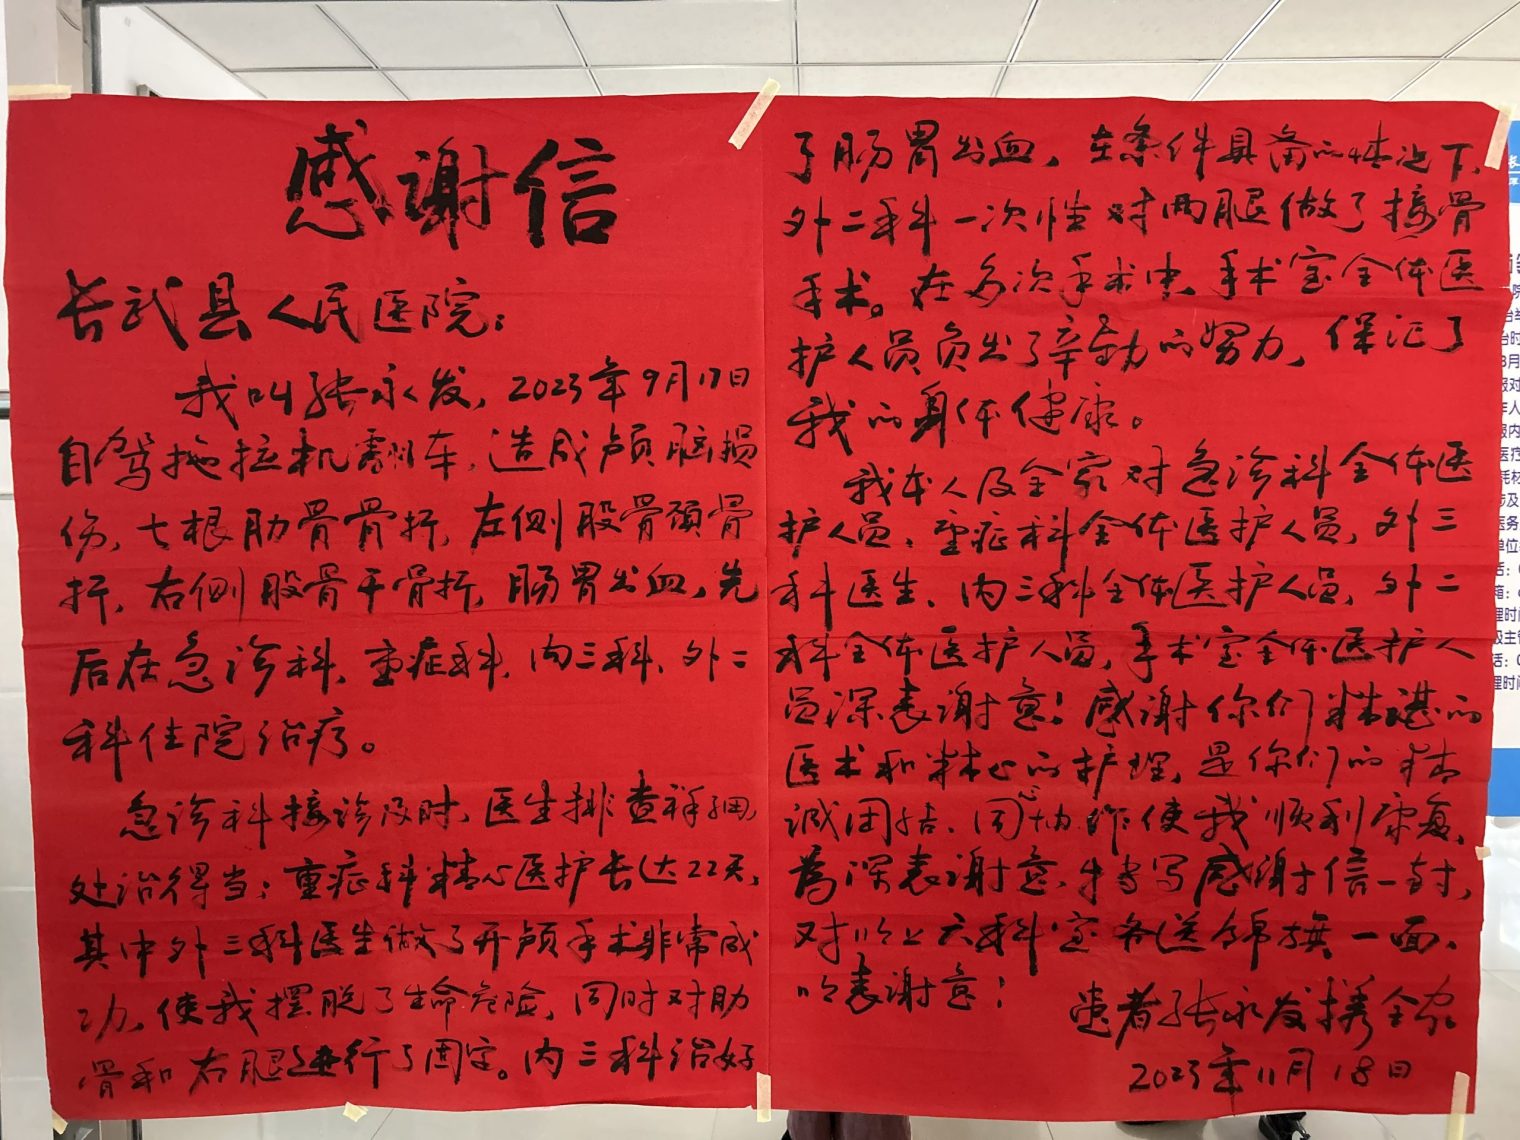 感谢信
长武县人民医院：
我叫张永发，2023年9月17日
自驾拖拉机翻车，造成颅脑损
伤，七根肋骨骨折，左侧股骨颈骨
折，右侧股骨干骨折，肠胃出血，先
后在急诊科，重症科，内三科、外二
科住院治疗。
急诊科接诊及时，医生排查祥细，
处治得当；重症科精心医护长达22天，
其中外三科医生做了开颅手术非常成
功，使我摆脱了生命危险，同时对肋
骨和右腿进行了固定。内三科治好
了肠胃出血，在条件具备的情况下，
外二科一次性对两腿做了接骨
手术。在多次手术中，手术室全体医
护人员负出了辛勤的努力，保证了
我的身体健康。
我本人及全家对急诊科全体医
护人员、重症科全体医护人员，外三
科医生、内三科全体医护人员，外二
科全体医护人员，手术室全体医护人
员深表谢意！感谢你们精湛的
医术和精心的护理，是你们的精
诚团结、同心协作使我顺利康复，
为深表谢意，特写感谢信一封，
对以上六科室各送锦旗一面、
以表谢意！
患者张永发携全家
2023年11月18日